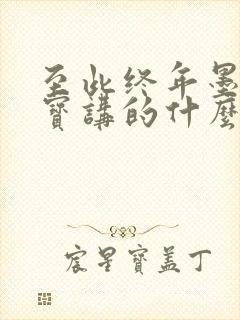 至此终年墨
寶講的什麼
宸星寶盖丁